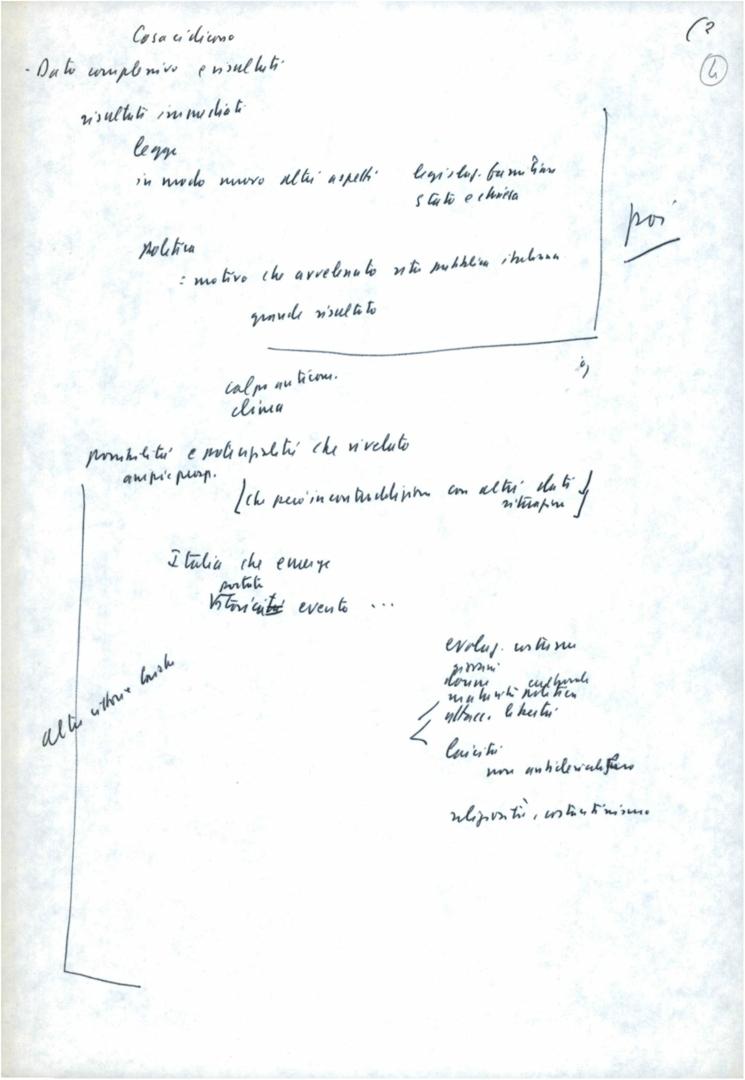 Cosa ci dicono
(?
4
- Dato complessivo e risultati
risultati immediati
legge
in modo nuovo altri aspetti legislaz. familiare
stato e chiesa
poi
politica
: motivo che avvelenato vita pubblica italiana
grande risultato
colpo anticom.
clima
possibilità e potenzialità che rivelato
ampie prosp.
[che però in contraddizione con altri dati
situazione]
Italia che emerge
portata
evento ...
evoluz. costume
giovani
donne culturale
maturità politica
attacc. libertà
altre vittorie laiche
laicità
non anticlericalismo
religiosità, costantinismo